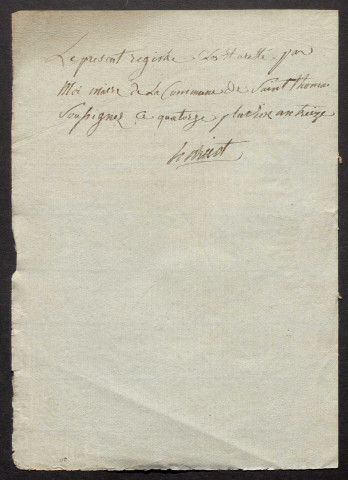 Le present registre clos et aretté par
Moi maire de La Commune de Saint Thomas
Soussignez Ce quatorze pluviose an treize